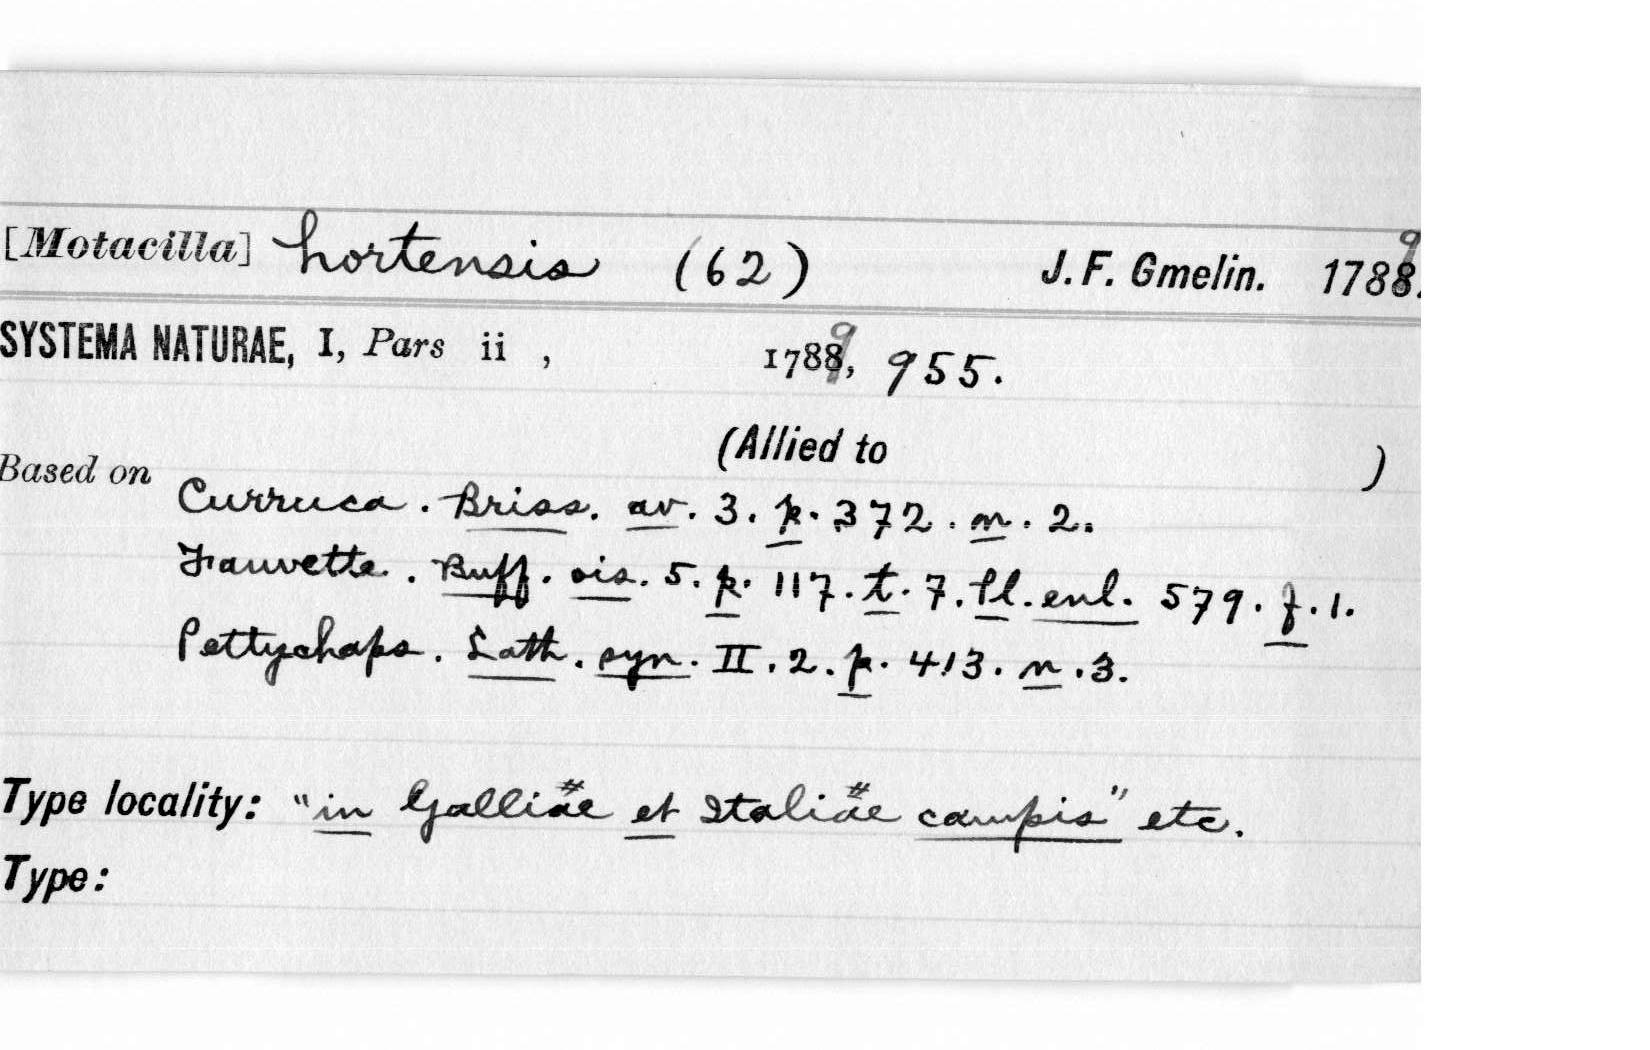 [Motacilla] hortensis (62) J. F. Gmelin. 1789.
SYSTEMA NATURAE, I, Pars ii , 1789, 955.
(Allied to )
Based on
Curruca. Briss. av. 3. p. 372. n. 2.
Fauvette. Buff. ois. 5. p. 117. t. 7. Pl. enl. 579. f. 1.
Pettychaps. Lath. syn. II. 2. p. 413. n. 3.
Type locality: "in Galliae # et Italiae # campis" etc.
Type: